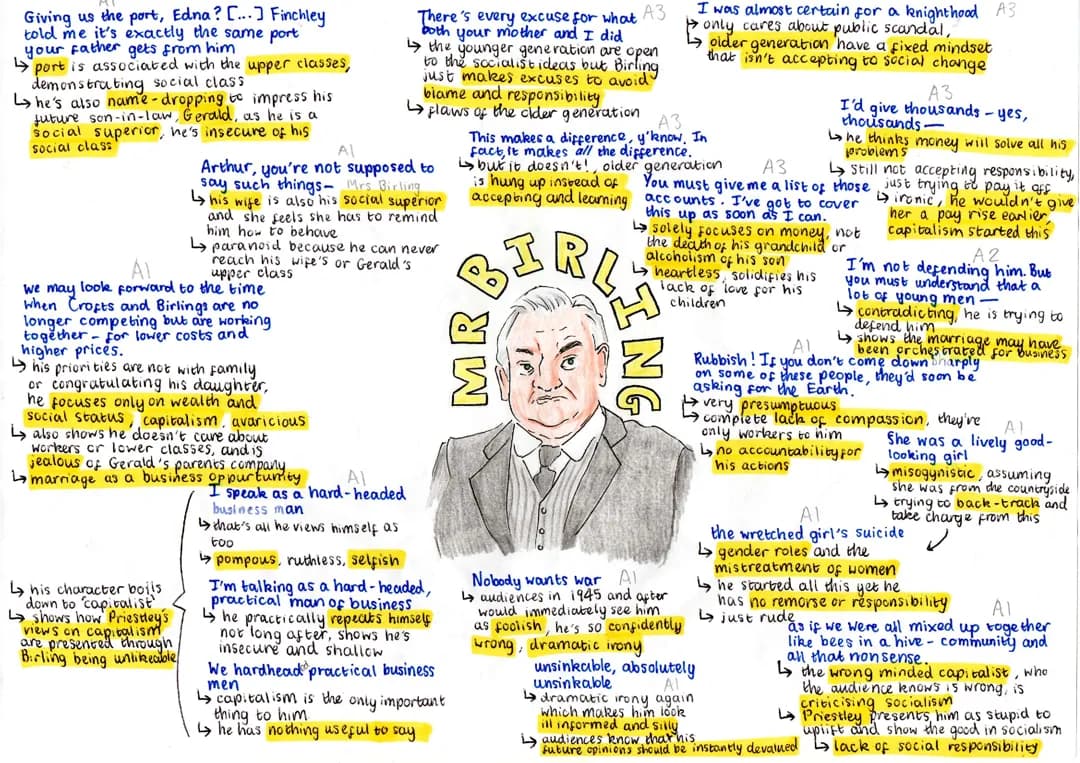 A1
Giving us the port, Edna? [...] Finchley
told me it's exactly the same port
your father gets from him
↳ port is associated with the upper classes,
demonstrating social class
↳ he's also name-dropping to impress his
future son-in-law, Gerald, as he is a
social superior, he's insecure of his
social class
There's every excuse for what A3
both your mother and I did
↳ the younger generation are open
to the socialist ideas but Birling
just makes excuses to avoid
blame and responsibility
↳ flaws of the older generation
I was almost certain for a knighthood A3
↳ only cares about public scandal,
↳ older generation have a fixed mindset
that isn't accepting to social change
A3
I'd give thousands - yes,
thousands —
↳ he thinks money will solve all his
problems
↳ still not accepting responsibility,
just trying to pay it off
↳ ironic, he wouldn't give
her a pay rise earlier,
capitalism started this
A3
This makes a difference, y'know. In
fact, it makes all the difference.
↳ but it doesn't!, older generation
is hung up instead of
accepting and learning
A1
Arthur, you're not supposed to
say such things — Mrs Birling
↳ his wife is also his social superior
and she feels she has to remind
him how to behave
↳ paranoid because he can never
reach his wife's or Gerald's
upper class
A3
You must give me a list of those
accounts. I've got to cover
this up as soon as I can.
↳ solely focuses on money, not
the death of his grandchild or
alcoholism of his son
↳ heartless, solidifies his
lack of love for his
children
A2
I'm not defending him. But
you must understand that a
lot of young men —
↳ contradicting, he is trying to
defend him
↳ shows the marriage may have
been orchestrated for business
A1
we may look forward to the time
when Crofts and Birlings are no
longer competing but are working
together - for lower costs and
higher prices.
↳ his priorities are not with family
or congratulating his daughter,
he focuses only on wealth and
social status, capitalism, avaricious
↳ also shows he doesn't care about
workers or lower classes, and is
jealous of Gerald's parents company
↳ marriage as a business oppurtunity
MR BIRLING
A1
Rubbish! If you don't come down sharply
on some of these people, they'd soon be
asking for the Earth.
↳ very presumptuous
↳ complete lack of compassion, they're
only workers to him
↳ no accountability for
his actions
A1
She was a lively good-
looking girl
↳ misogynistic, assuming
she was from the countryside
↳ trying to back-track and
take charge from this
A1
I speak as a hard-headed
business man
↳ that's all he views himself as
too
↳ pompous, ruthless, selfish
I'm talking as a hard-headed,
practical man of business
↳ he practically repeats himself
not long after, shows he's
insecure and shallow
We hardheaded practical business
men
↳ capitalism is the only important
thing to him
↳ he has nothing useful to say
↳ his character boils
down to 'capitalist'
↳ shows how Priestley's
views on capitalism
are presented through
Birling being unlikeable
Nobody wants war A1
↳ audiences in 1945 and after
would immediately see him
as foolish, he's so confidently
wrong, dramatic irony
unsinkable, absolutely
unsinkable A1
↳ dramatic irony again
which makes him look
ill informed and silly
↳ audiences know that his
future opinions should be instantly devalued
A1
the wretched girl's suicide
↳ gender roles and the
mistreatment of women
↳ he started all this yet he
has no remorse or responsibility
↳ just rude
A1
as if we were all mixed up together
like bees in a hive - community and
all that nonsense.
↳ the wrong minded capitalist, who
the audience knows is wrong, is
criticising socialism
↳ Priestley presents him as stupid to
uplift and show the good in socialism
↳ lack of social responsibility